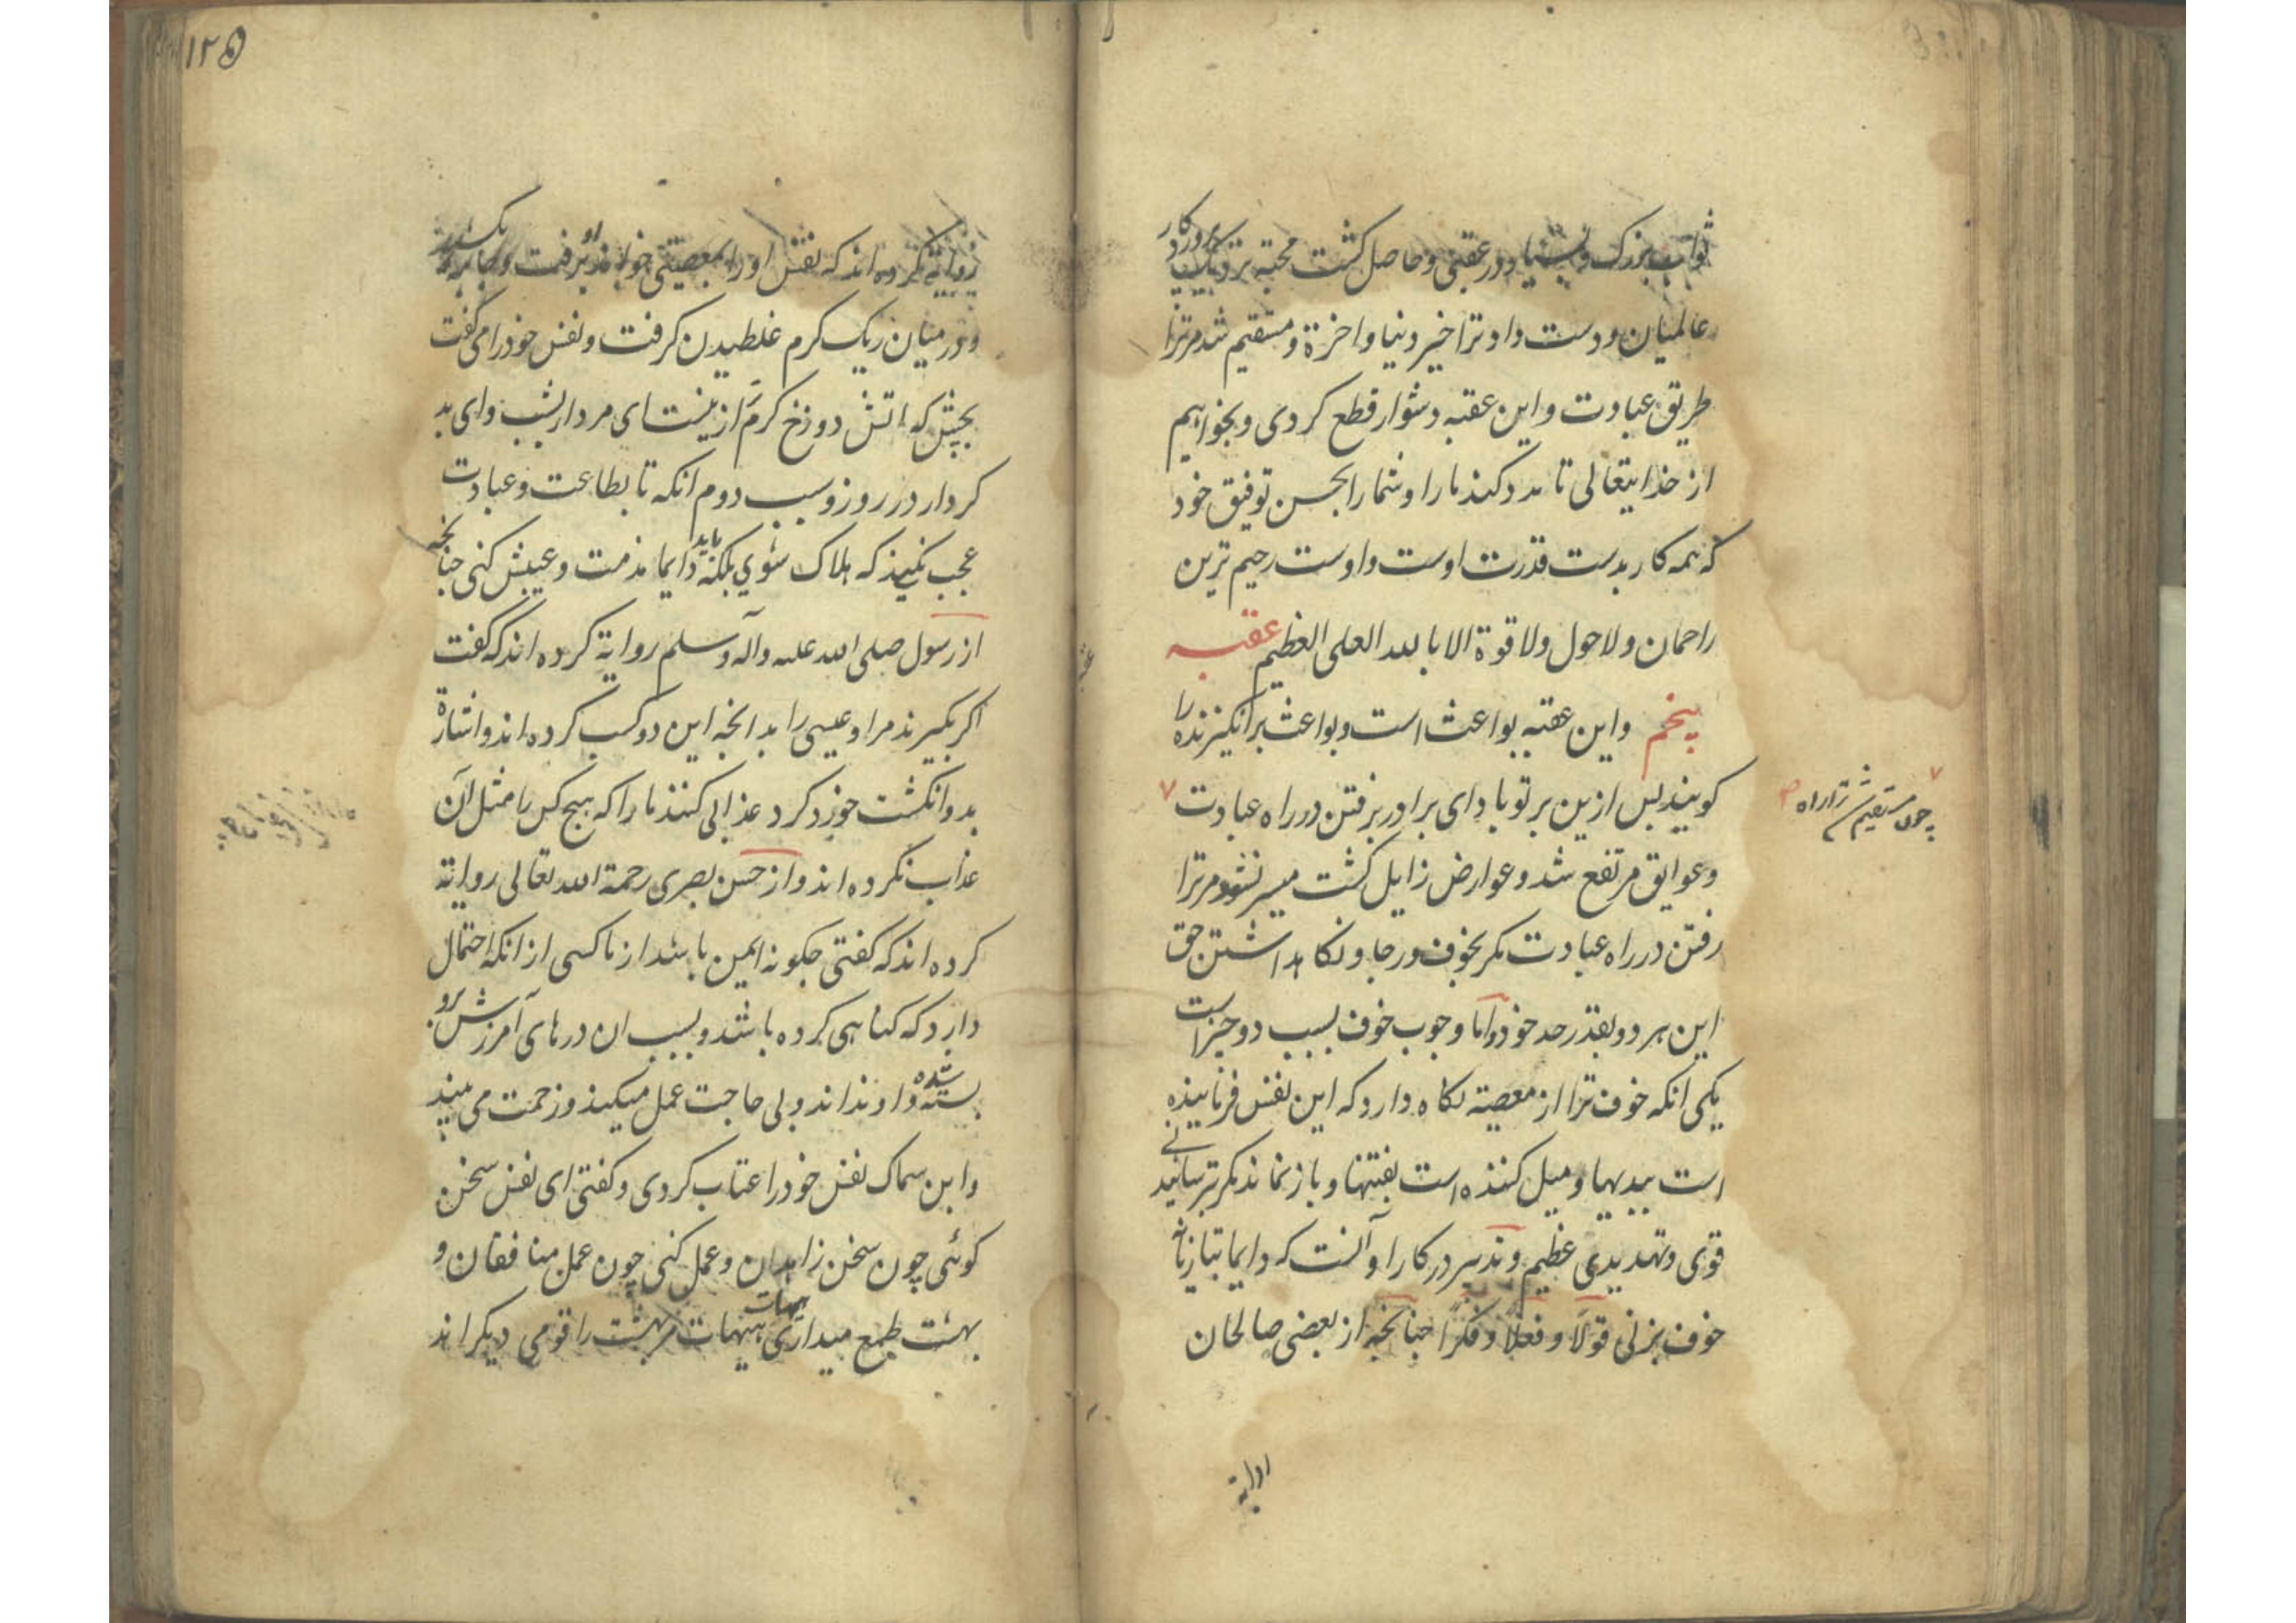 ثواب بزرک و بسیار در عقبی و حاصل کشت محبة نزدیک پروردکار
عالمیان و دست داد ترا خیر دنیا و اخرة و مستقیم شد مرترا
طریق عبادت و این عقبه دشوار قطع کردی و بخواهیم
از خدایتعالی تا مدد کند ما را و شما را بحسن توفیق خود
که همه کار بدست قدرت اوست و اوست رحیم ترین
راحمان و لا حول و لا قوة الا بالله العلی العظیم عقبه
پنجم و این عقبه بواعث است و بواعث برانکیزنده را
کویند پس ازین بر تو باد ای برادر برفتن در راه عبادت ۷
۷ چون مستقیم شد ترا راه
و عوایق مرتفع شد و عوارض زایل کشت میسر نشود مرترا
رفتن در راه عبادت مکر بخوف و رجا و نکاهداشتن حق
این هر دو بقدر حد خود و اما وجوب خوف بسبب دو چیز است
یکی انکه خوف ترا از معصیة نکاه دارد که این نفس فرماینده
است ببدیها و میل کننده است بفتنها و باز نماند مکر بترسانیدنی
قوی و تهدیدی عظیم و تدبیر در کار او آنست که دایما بتازیانه
خوف بزنی قولاً و فعلاً و فکراً چنانچه از بعضی صالحان
۱۲۵
روایة کرده اند که نفس او را بمعصیتی خواند او برفت و جامه بکشید
و در میان ریک کرم غلطیدن کرفت و نفس خود را می کفت
بچش که اتش دوزخ کرم تر ازینست ای مردار بشب و ای بد
کردار در روز و سبب دوم انکه تا بطاعت و عبادت
عجب نکنید که هلاک شوی بلکه باید دایما مذمت و عیبش کنی چنانچه
از رسول صلی الله علیه و آله و سلم روایة کرده اند که کفت
اکر بکیرند مرا و عیسی را بدانچه این دو کسب کرده اند و اشارة
بدو انکشت خود کرد عذابی کنند ما را که هیچ کس را مثل آن
عذاب نکرده اند و از حسن بصری رحمة الله تعالی روایة
کرده اند که کفتی چکونه ایمن باشد از ما کسی از انکه احتمال
دارد که کناهی کرده باشد و بسبب ان درهای آمرزش برو
بسته شده و او نداند و بی حاجت عمل میکند و زحمت می بیند
و ابن سماک نفس خود را عتاب کردی و کفتی ای نفس سخن
کوئی چون سخن زاهدان و عمل کنی چون عمل منافقان و
بهشت طمع میداری هیهات هیهات مر بهشت را قومی دیکر اند